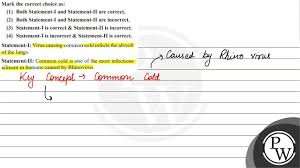 Mark the correct choice as:
(1) Both Statement-I and Statement-II are correct.
(2) Both Statement-I and Statement-II are incorrect.
(3) Statement-I is correct & Statement-II is incorrect.
(4) Statement-I is incorrect & Statement-II is correct.
Statement-I: Virus causing common cold infects the alveoli
of the lungs.
Statement-II: Common cold is one of the most infectious
ailment in humans caused by Rhinovirus.
→ Caused by Rhino virus
Key Concept → Common Cold
P
W